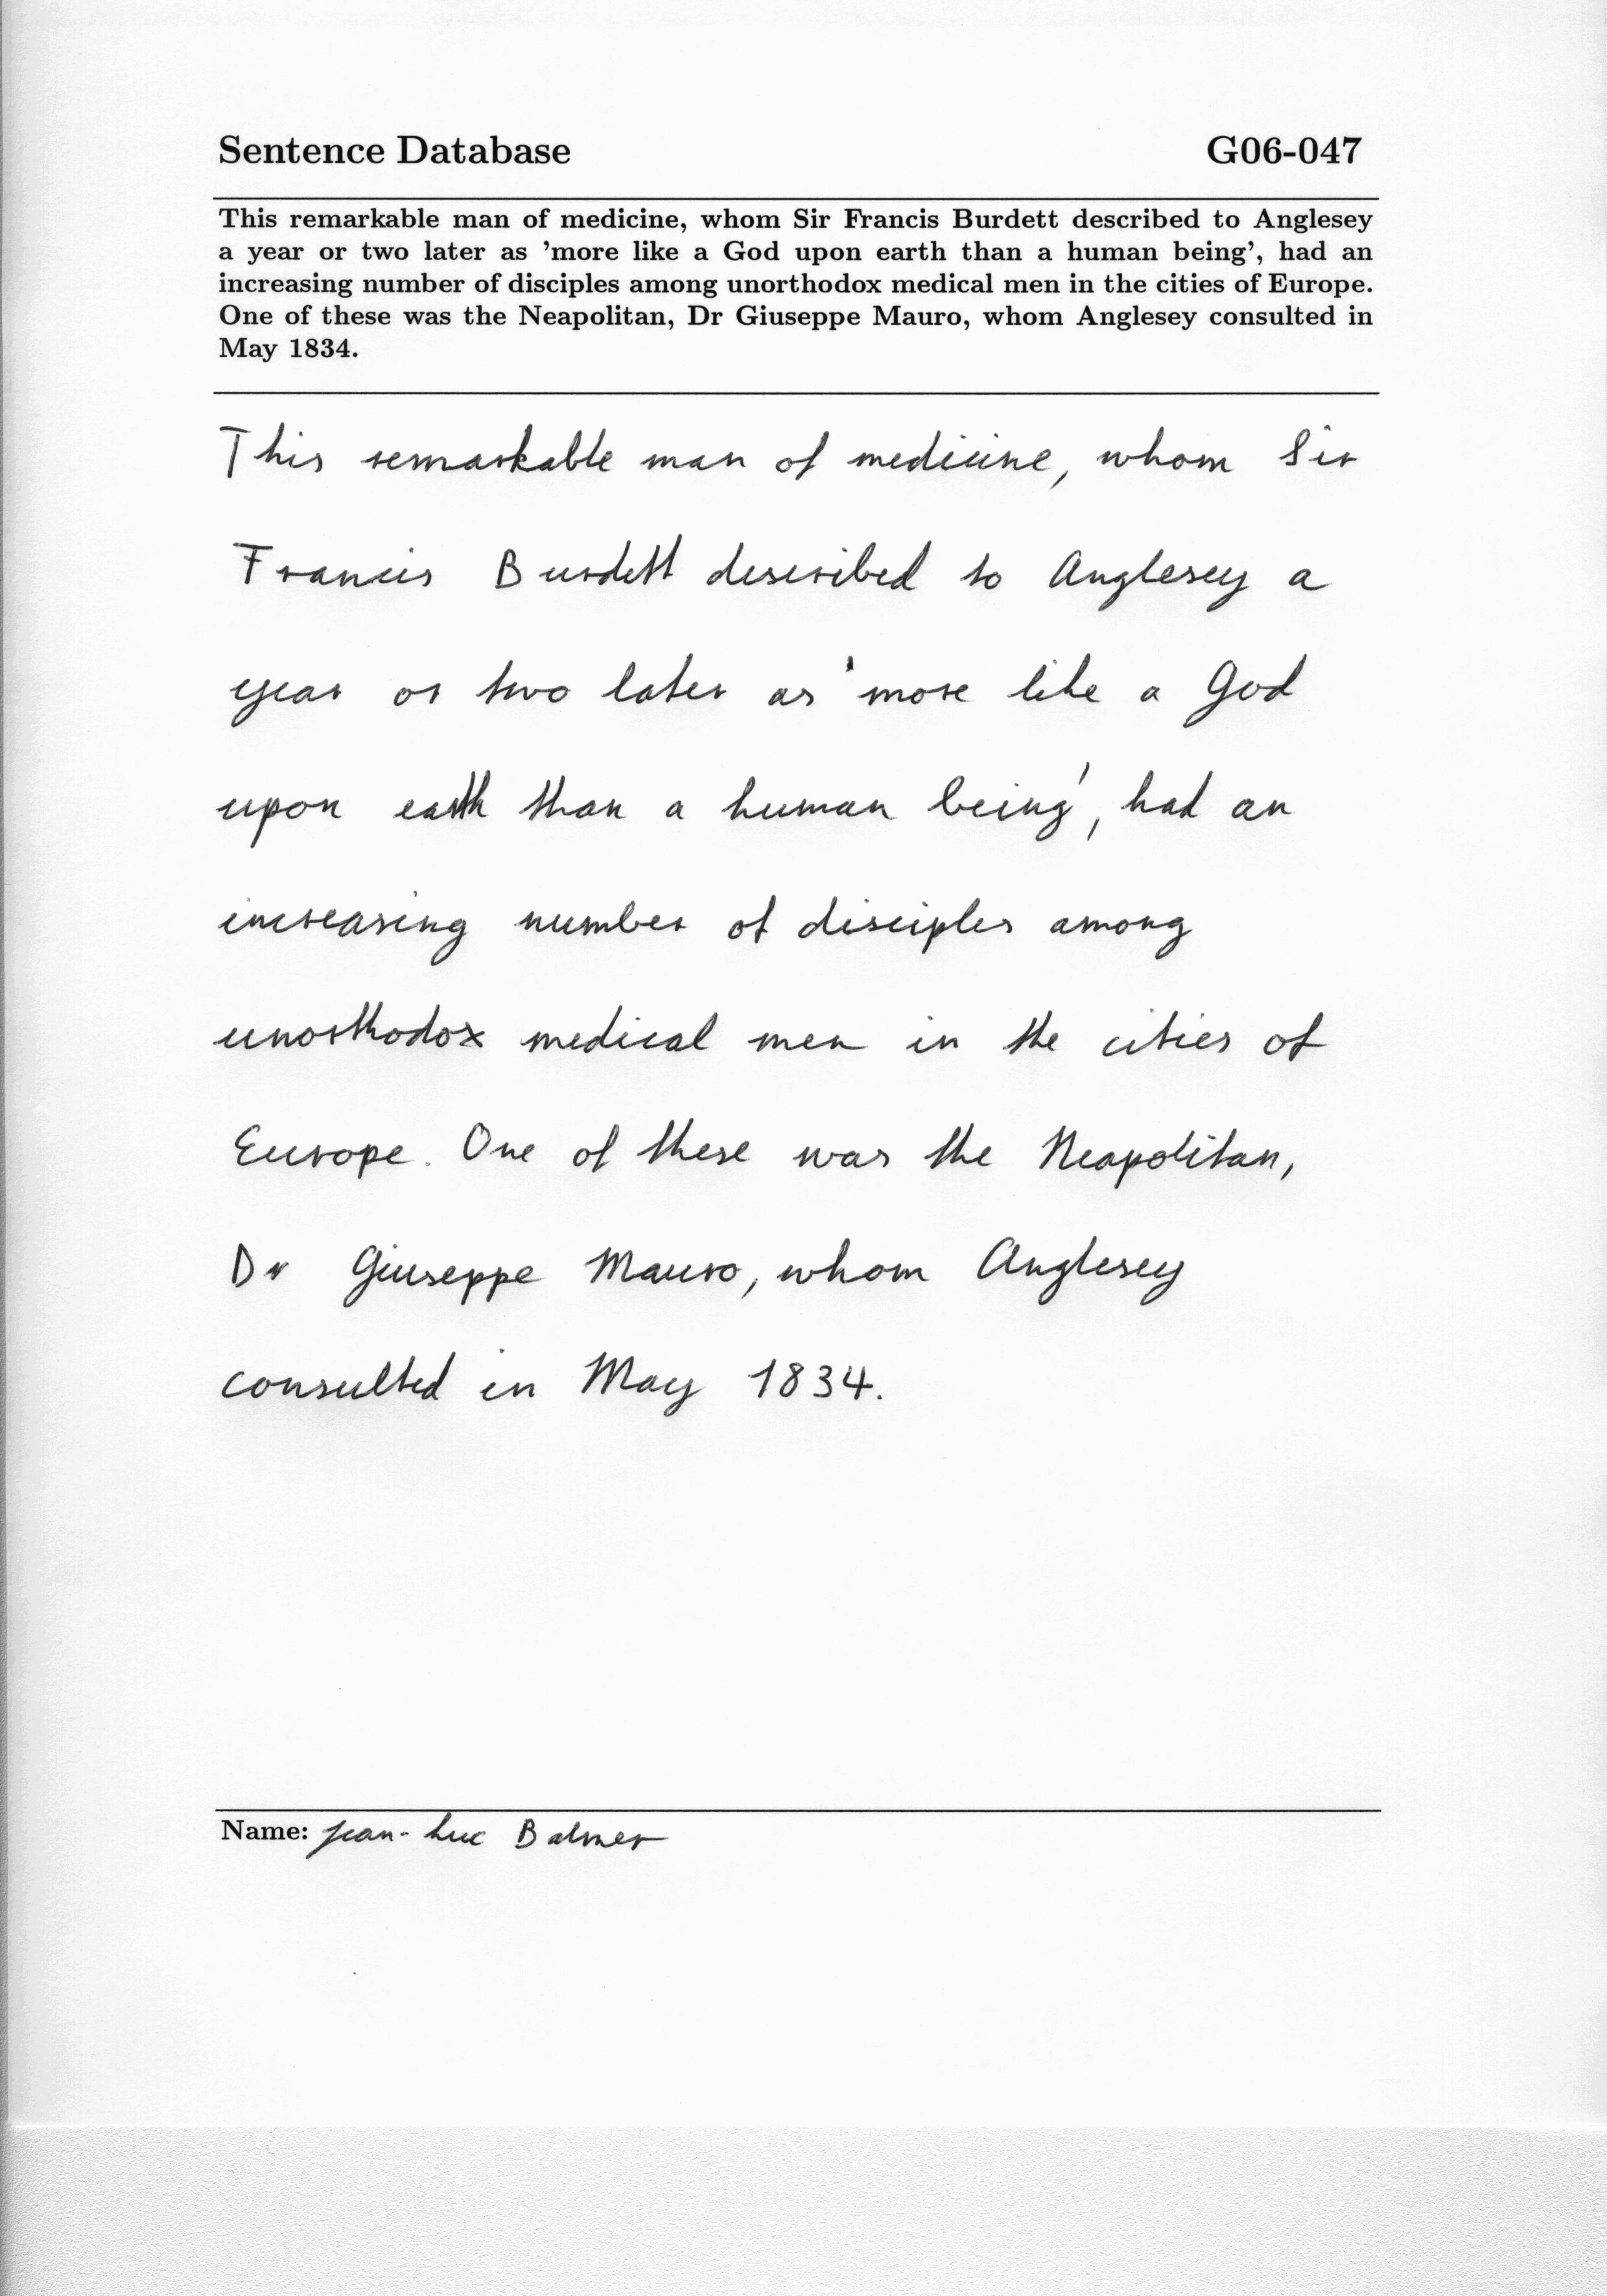 Sentence Database G06-047
This remarkable man of medicine, whom Sir Francis Burdett described to Anglesey
a year or two later as 'more like a God upon earth than a human being', had an
increasing number of disciples among unorthodox medical men in the cities of Europe.
One of these was the Neapolitan, Dr Giuseppe Mauro, whom Anglesey consulted in
May 1834.
This remarkable man of medicine, whom Sir
Francis Burdett described to Anglesey a
year or two later as 'more like a God
upon earth than a human being', had an
increasing number of disciples among
unorthodox medical men in the cities of
Europe. One of these was the Neapolitan,
Dr Giuseppe Mauro, whom Anglesey
consulted in May 1834.
Name: Jean-Luc Balmer